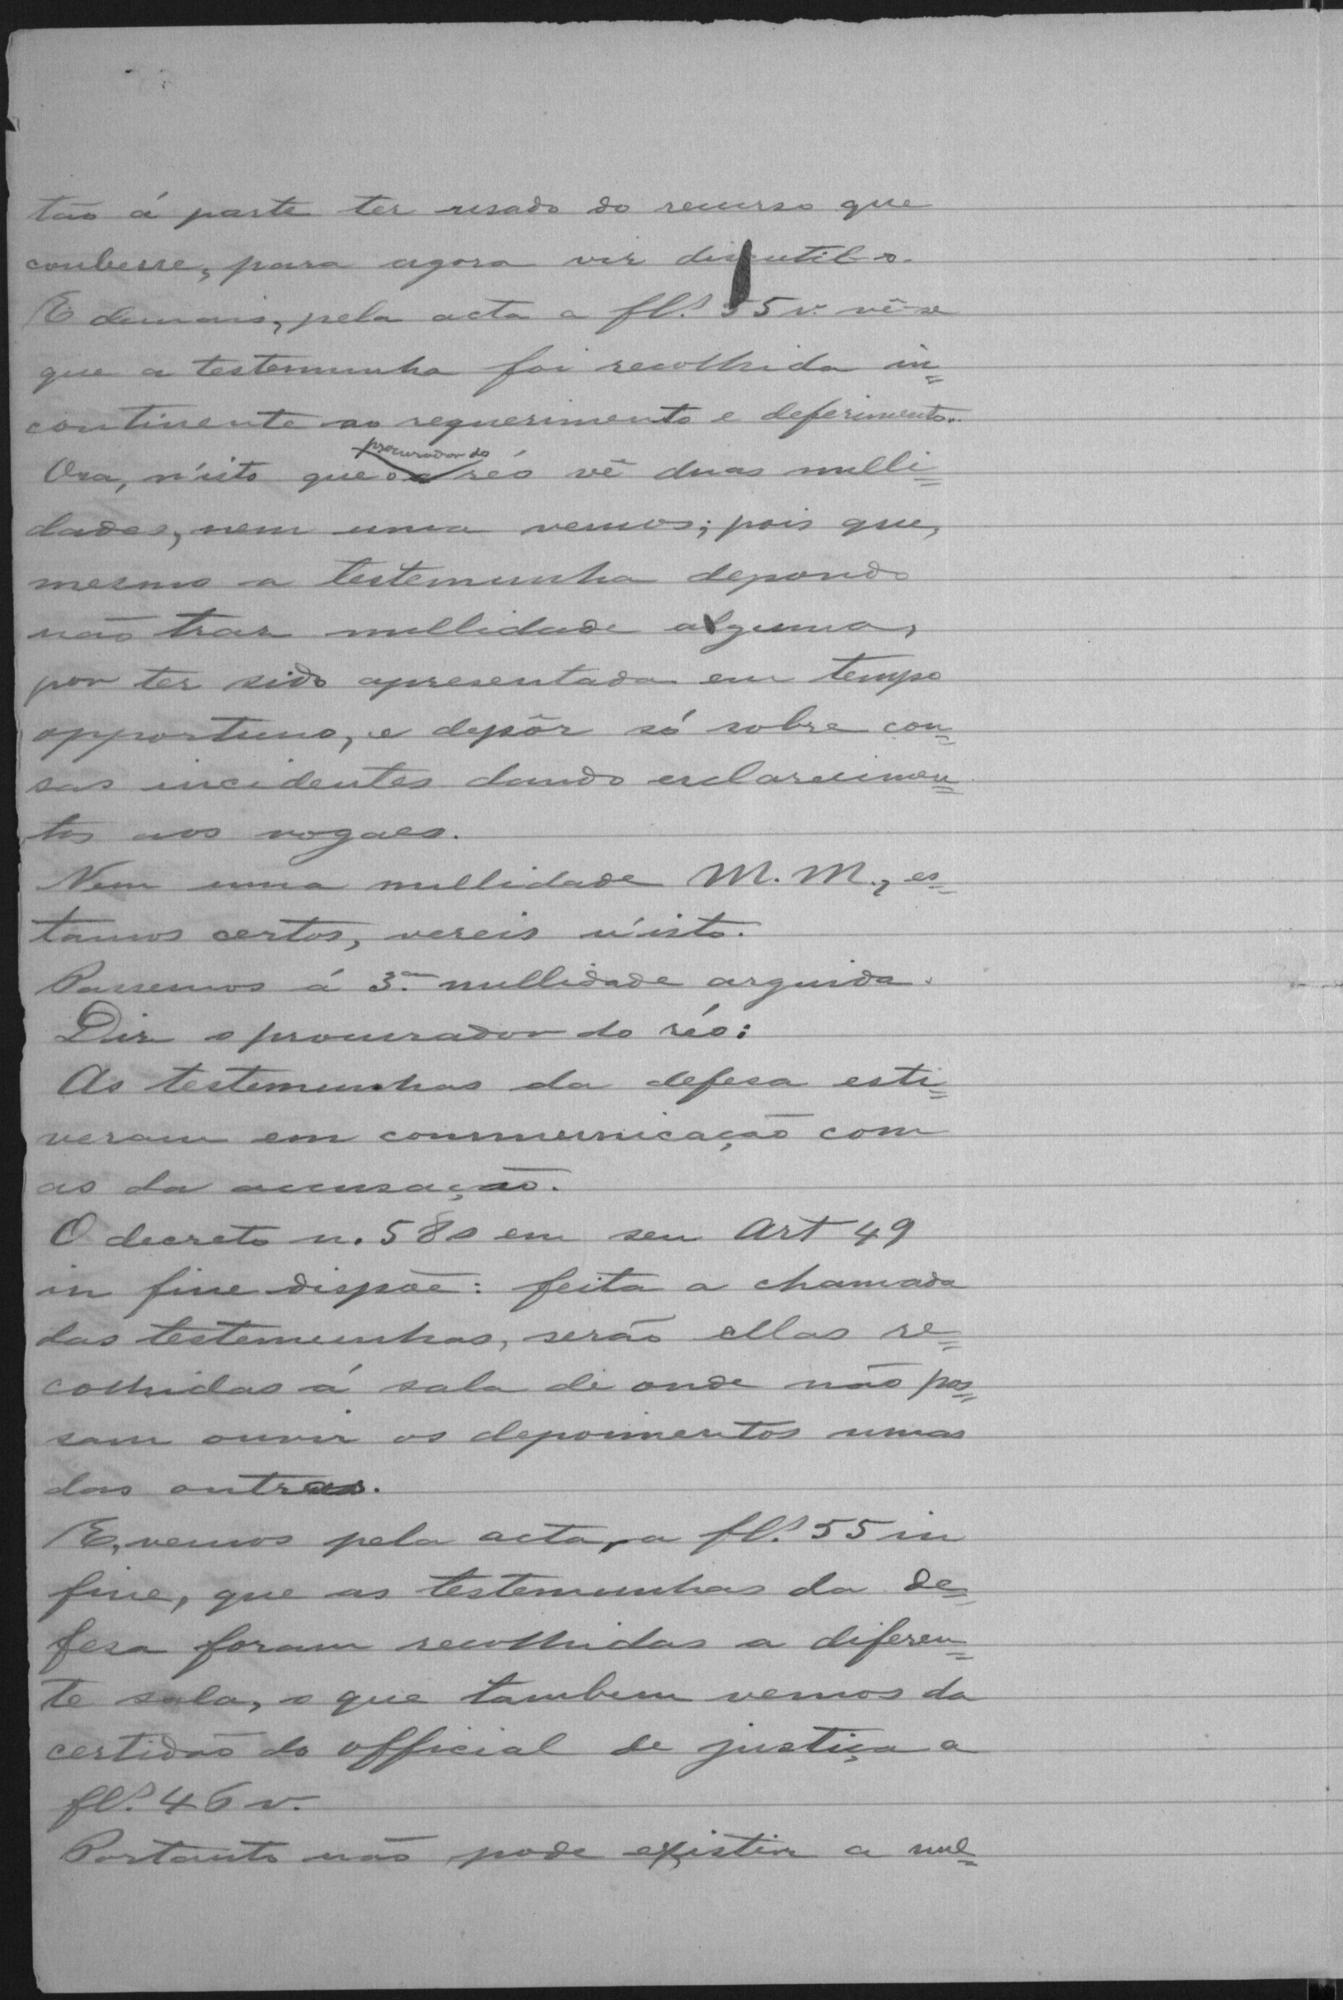 tão á parte ter usado do recurso que
coubesse, para agora vir discutil-o.
E demais, pela acta a fls. 55 v. vê-se
que a testemunha foi recolhida in=
continente ao requerimento e deferimento.
Ora, n'isto que o procurador do réo vê duas nulli=
dades, nem uma vemos; pois que,
mesmo a testemunha depondo
não traz nullidade alguma,
por ter sido apresentada em tempo
opportuno, e depôr só sobre cou=
sas incidentes dando esclarecimen=
tos aos vogaes.
Nem uma nullidade M. M., es=
tamos certos, vereis n'isto.
Passemos á 3.ª nullidade arguida.
Diz o procurador do réo:
As testemunhas da defesa esti=
veram em communicação com
as da accusação.
O decreto n. 580 em seu Art 49
in fine dispõe: feita a chamada
das testemunhas, serão ellas re=
colhidas á sala de onde não pos=
sam ouvir os depoimentos umas
das outras.
E, vemos pela acta, a fls. 55 in
fine, que as testemunhas da de=
fesa foram recolhidas a diferen=
te sala, o que tambem vemos da
certidão do official de justiça a
fls. 46 v.
Portanto não pode existir a nul=